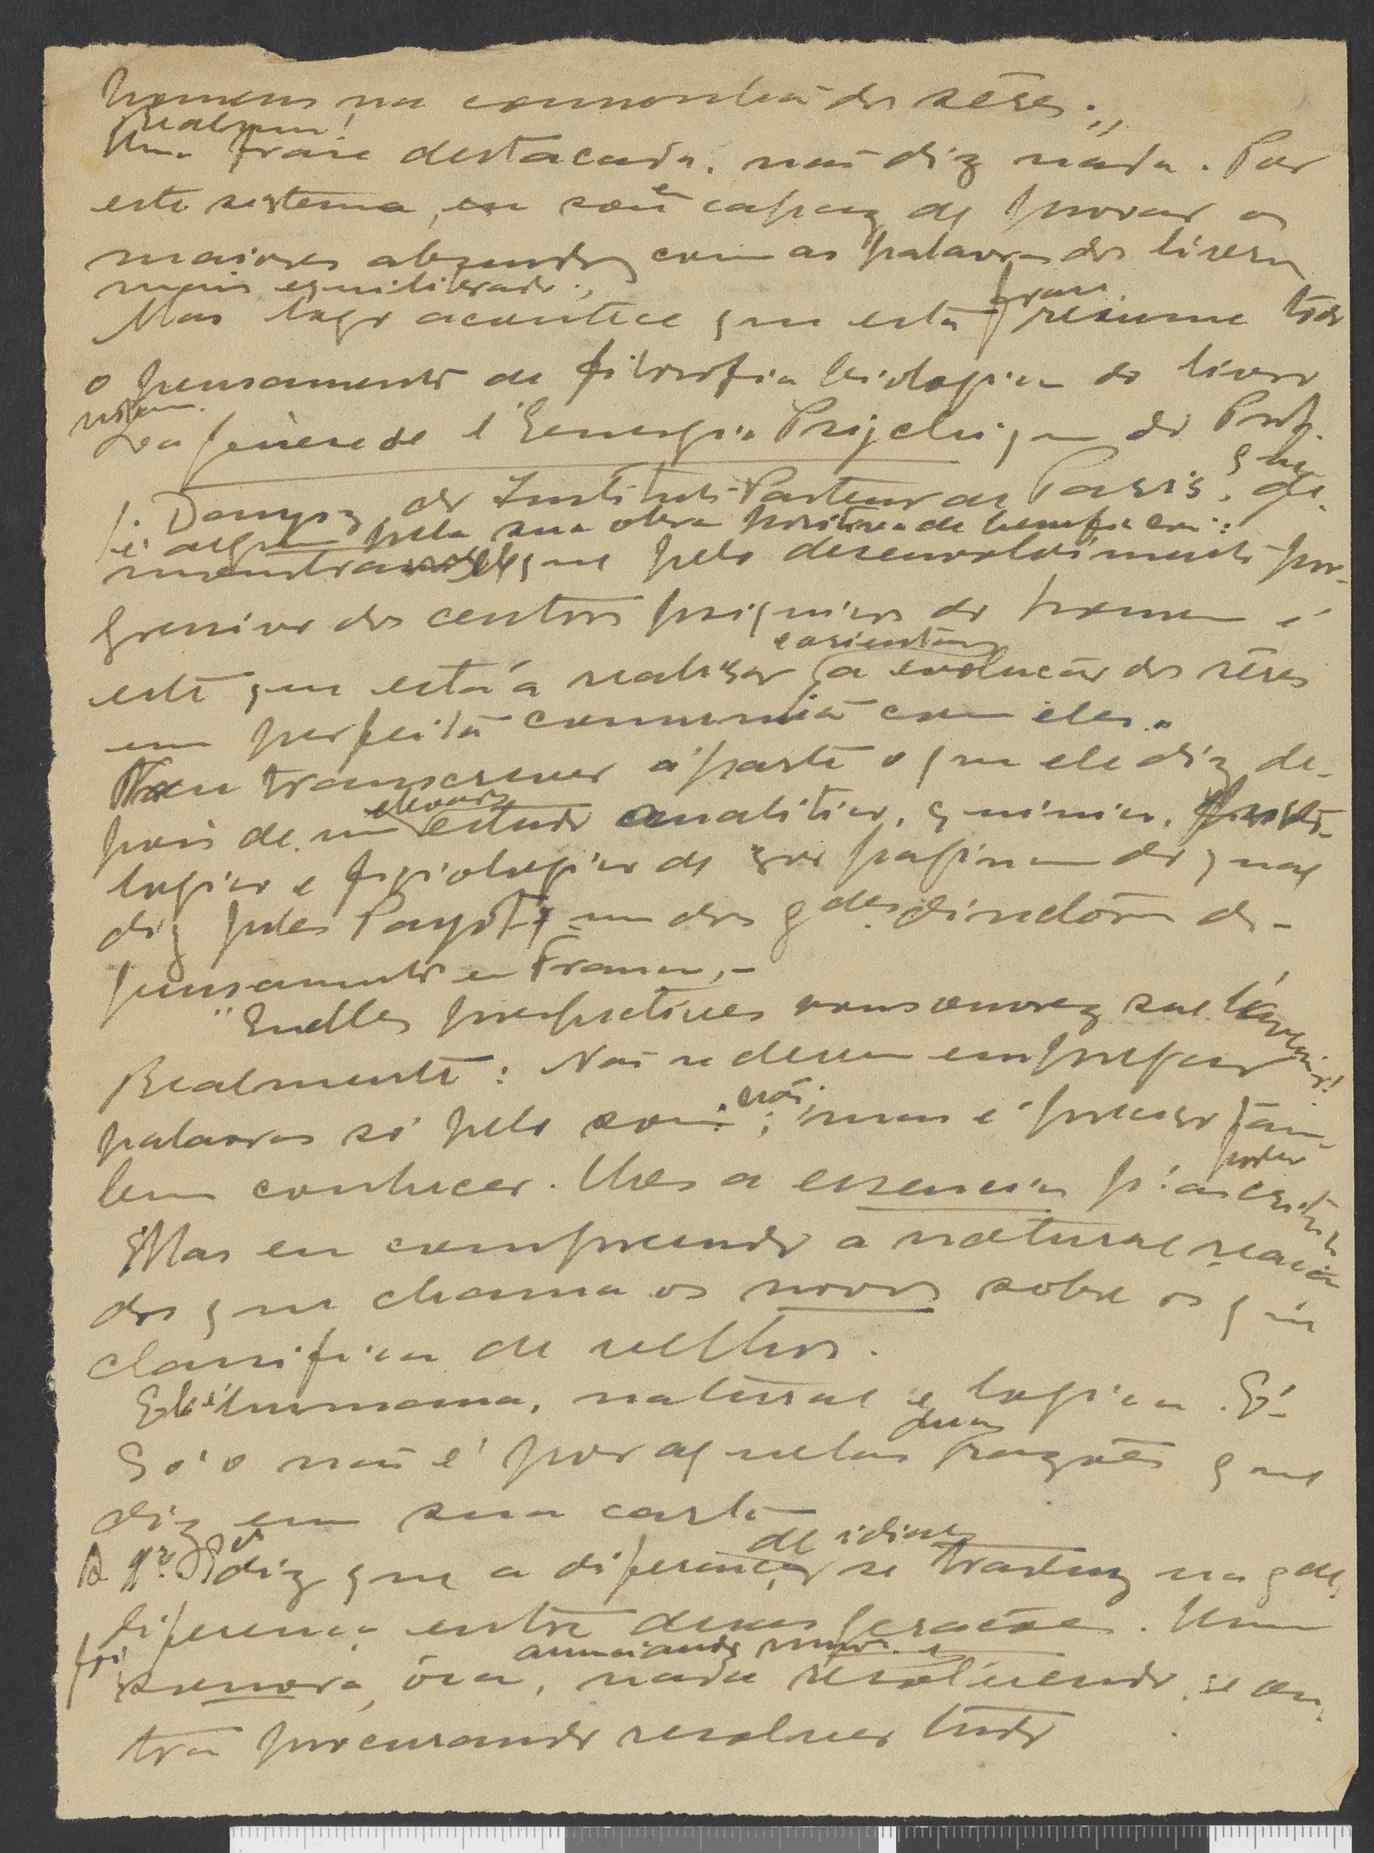 homens na comonhão dos sêres.,,
realmen!
Uma frase destacada, não diz nada. Por
este sistema, eu sou capaz de provar os
maiores absurdos com as palavras dos livros
mais equilibrados.,
Mas logo acontece que esta frase resume todo
o pensamento de filosofia biologica do livro
La genèse de l'Energie Psychique do Prof.
J. Danysz, do Instituto Pasteur de Paris, que
é alguem pela sua obra positiva de beneficencia:
que pelo desenvolvimento pro-
gressivo dos centros psiquicos do homem é
este que está a realizar e orientar a evolucão dos sêres
em perfeita comunhão com eles.
transcrever áparte o que ele diz de-
pois de um elevado estudo analitico, quimico,
logico e fisiologico de paginas do qual
diz Jules Payot, um dos gdes. diretores do
pensamento em França,-
"Quelles perspectives vous ouvrez sur l'avenir!
Realmente: Não se devem empregar
palavras só pelo som: não; mas é preciso tam-
bem conhecer-lhes a essencia p.ª as
Mas eu compreendo a natural reacão
dos que chama os novos sobre os que
classifica de velhos.
humana, natural e logica. E'-
Só o não é por aquelas duas razões que
diz em sua carta
A 1ª diz que a diferença de idiaes se traduz na gde.
diferença entre duas geracões. Uma
foi sonora, ôca, anunciando muito e nada resolvendo, e ou-
tra procurando resolver tudo